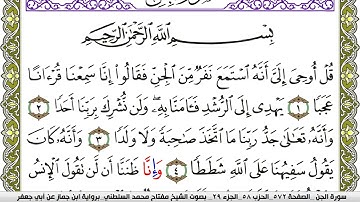 بِسْمِ ٱللَّهِ ٱلرَّحْمَٰنِ ٱلرَّحِيمِ
قُلْ أُوحِىَ إِلَىَّ أَنَّهُ ٱسْتَمَعَ نَفَرٌ مِّنَ ٱلْجِنِّ فَقَالُوٓا۟ إِنَّا سَمِعْنَا قُرْءَانًا
عَجَبًا ١ يَهْدِىٓ إِلَى ٱلرُّشْدِ فَـَٔامَنَّا بِهِۦ وَلَن نُّشْرِكَ بِرَبِّنَآ أَحَدًا ٢
وَأَنَّهُۥ تَعَٰلَىٰ جَدُّ رَبِّنَا مَا ٱتَّخَذَ صَٰحِبَةً وَلَا وَلَدًا ٣ وَأَنَّهُۥ كَانَ
يَقُولُ سَفِيهُنَا عَلَى ٱللَّهِ شَطَطًا ٤ وَإِنَّا ظَنَنَّآ أَن لَّن تَقُولَ ٱلْإِنسُ
سورة الجن . الصفحة ٥٧٢ الحزب ٥٨ . الجزء ٢٩ . بصوت الشيخ مفتاح محمد السلطني. برواية ابن جماز عن أبي جعفر